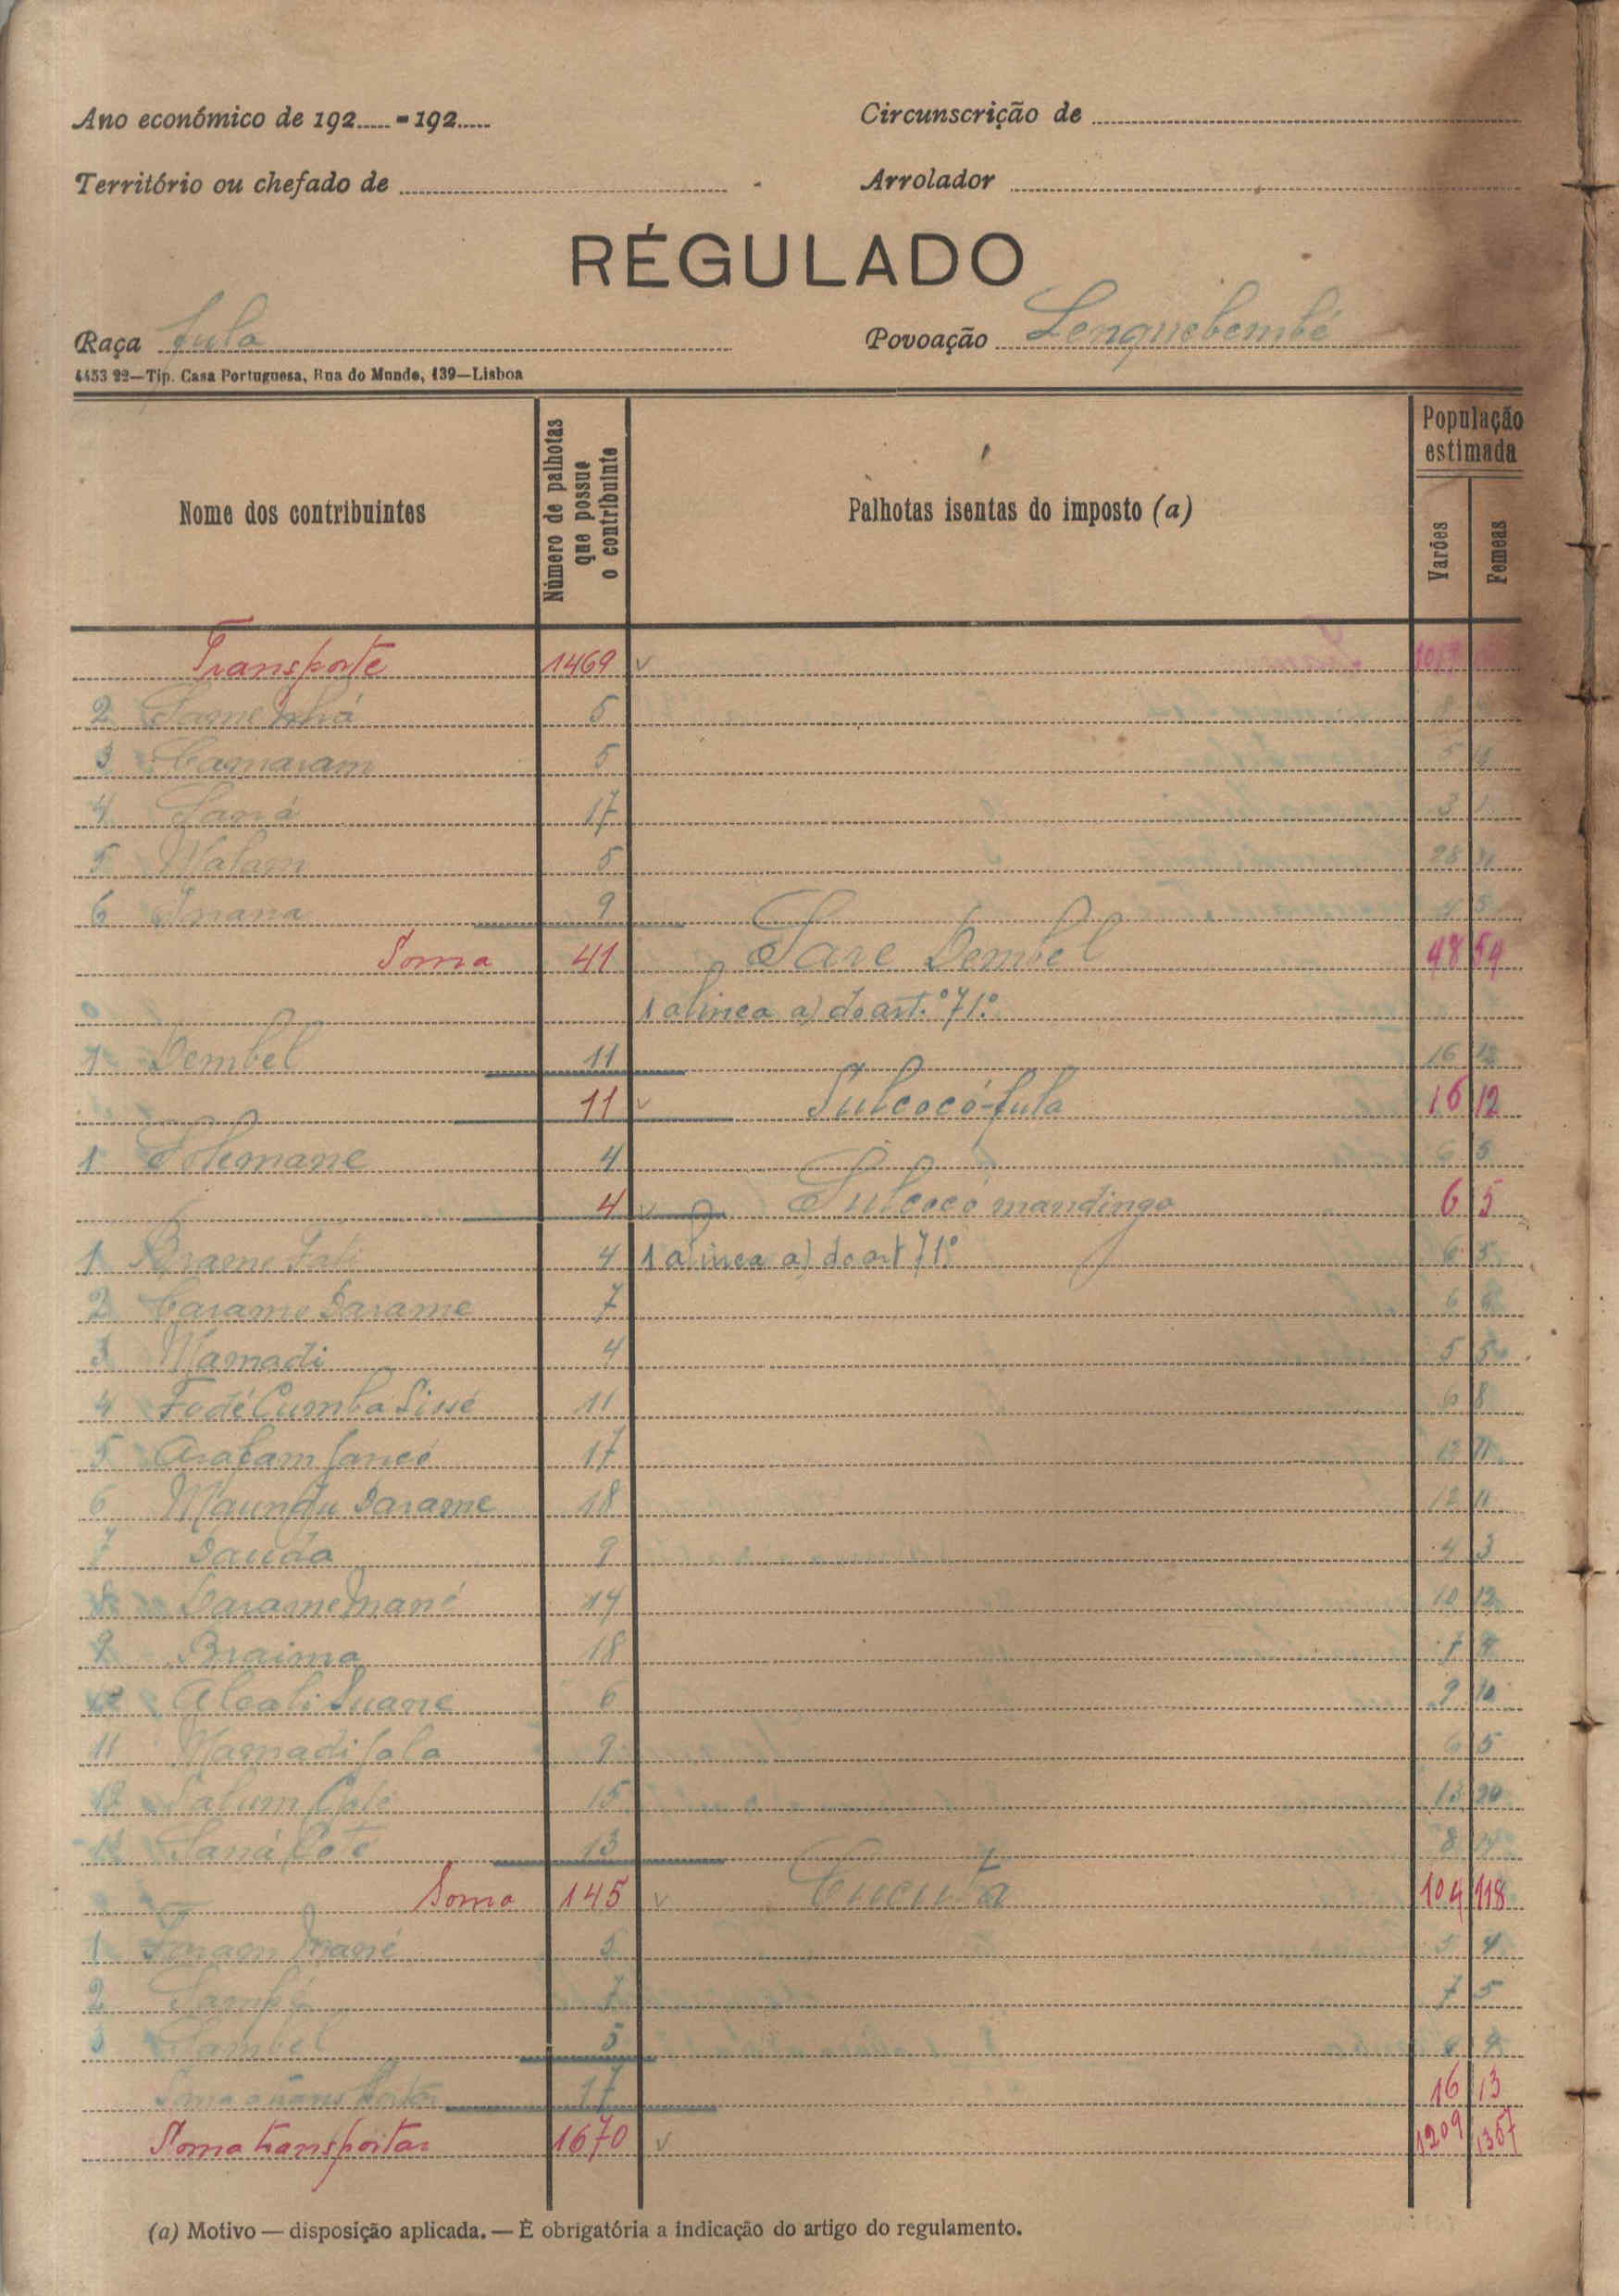 Ano económico de 192..... - 192..... Circunscrição de
Território ou chefado de Arrolador
RÉGULADO
Raça fula Povoação Lenquebembé
4453 22—Tip. Casa Portuguesa, Rua do Mundo, 139—Lisboa
Nome dos contribuintes Número de palhotas que possue o contribuinte Palhotas isentas do imposto (a) População estimada Varões Femeas
Transporte 1469
2 5
3 Camaram 5 5 4
4 Saná 17 3
5 Malam 5
6 9
Soma 41 Sare Dembel 48 59
1 alinea a) do art.º 71º
1 Dembel 11 16 12
11 Sulcocó-fula 16 12
1 Solemane 4 6 5
4 Sulcocó mandinga 6 5
1 4 1 alinea a) do art 71º 6 5
2 Caramo Darame 7 6 6
3 Mamadi 4 5 5
4 Fodé Cumba Sissé 11 6 8
5 Arafam 17 12 11
6 Maundu Darame 18 12 11
7 Dauda 9 4 3
8 Darame Mané 14 10 12
9 Braima 18
10 Alcali Suane 6 9 10
11 Mamadi 9 6 5
12 15 13 20
13 Saná 13 8 14
Soma 145 Cucuta 104 118
1 Mané 5 5 4
2 7 7 5
3 Sambel 5 4 4
17 16 13
Soma transportar 1670 1209 1357
(a) Motivo — disposição aplicada. — É obrigatória a indicação do artigo do regulamento.